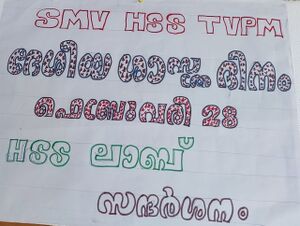 SMV HSS TVPM
ദേശീയ ശാസ്ത്ര ദിനം
ഫെബ്രുവരി 28
HSS ലാബ്
സന്ദർശനം